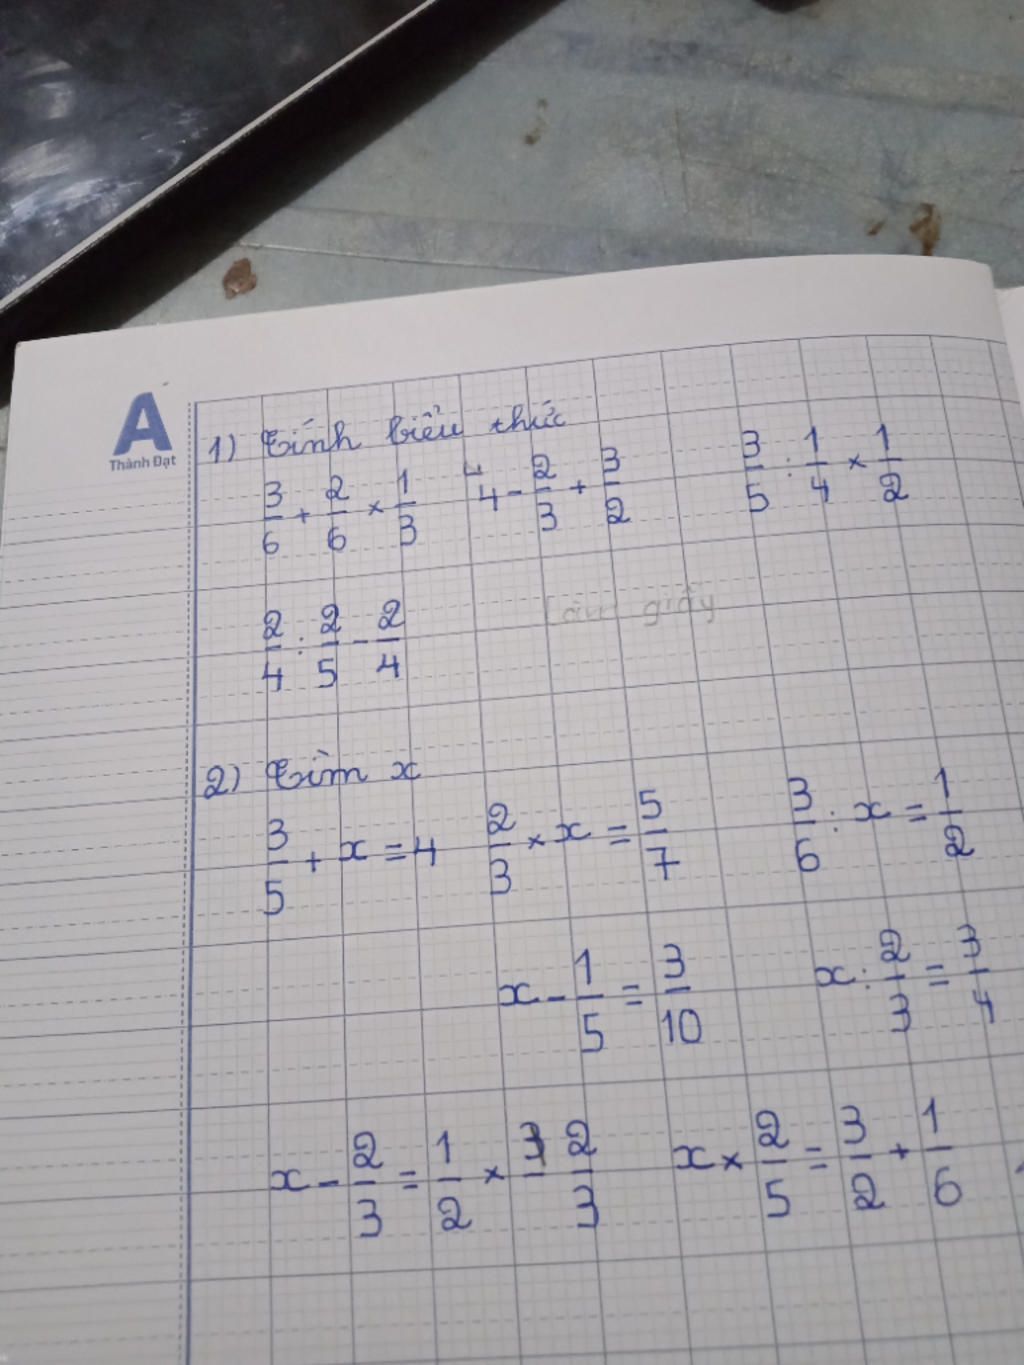 A
Thành Đạt
1) Tính biểu thức
3/6 + 2/6 × 1/3 4 - 2/3 + 3/2 3/5 : 1/4 × 1/2
2/4 : 2/5 - 2/4
giấy
2) Tìm x
3/5 + x = 4 2/3 × x = 5/7 3/6 : x = 1/2
x - 1/5 = 3/10 x : 2/3 = 3/4
x - 2/3 = 1/2 × 2/3 x × 2/5 = 3/2 + 1/6